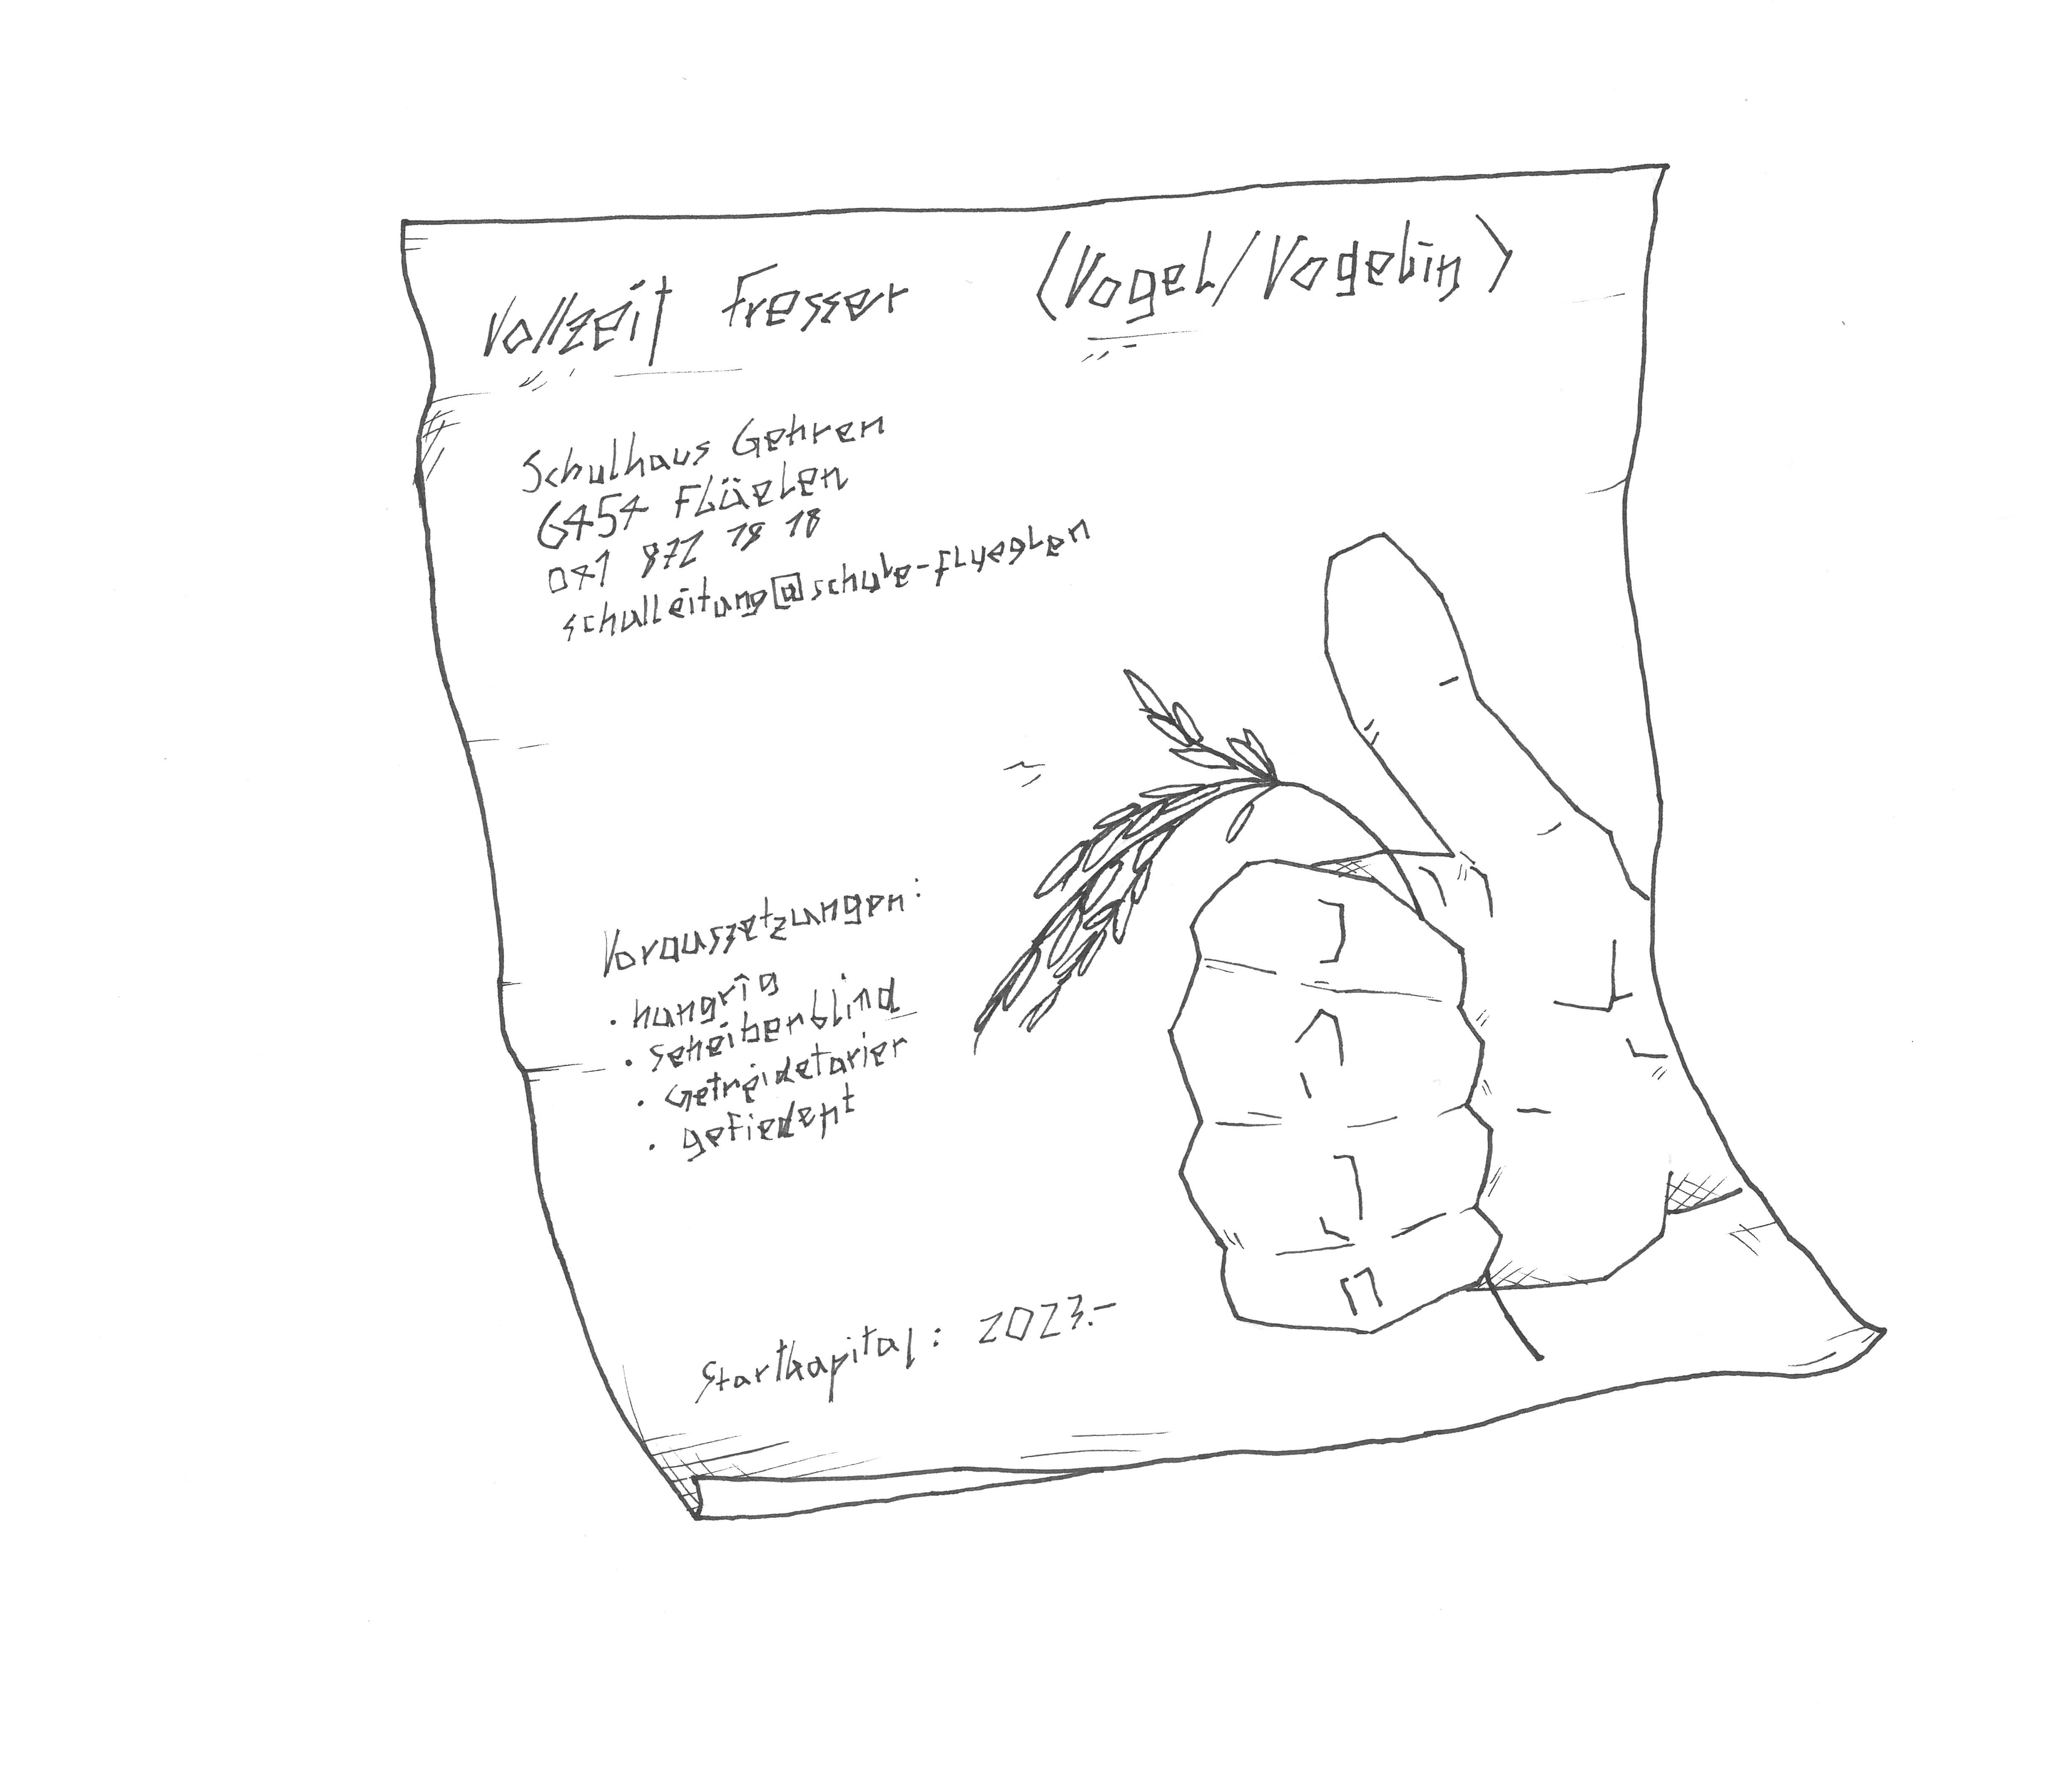 Vollzeit Fresser (Vogel/Vogelin)
Schulhaus Gehren
6454 Flüelen
041 872 18 18
schulleitung@schule-flyeglen
Voraussetzungen:
· hungrig
· Scheibenblind
· Getreidetarier
· gefiedert
Startkapital: 2023.-